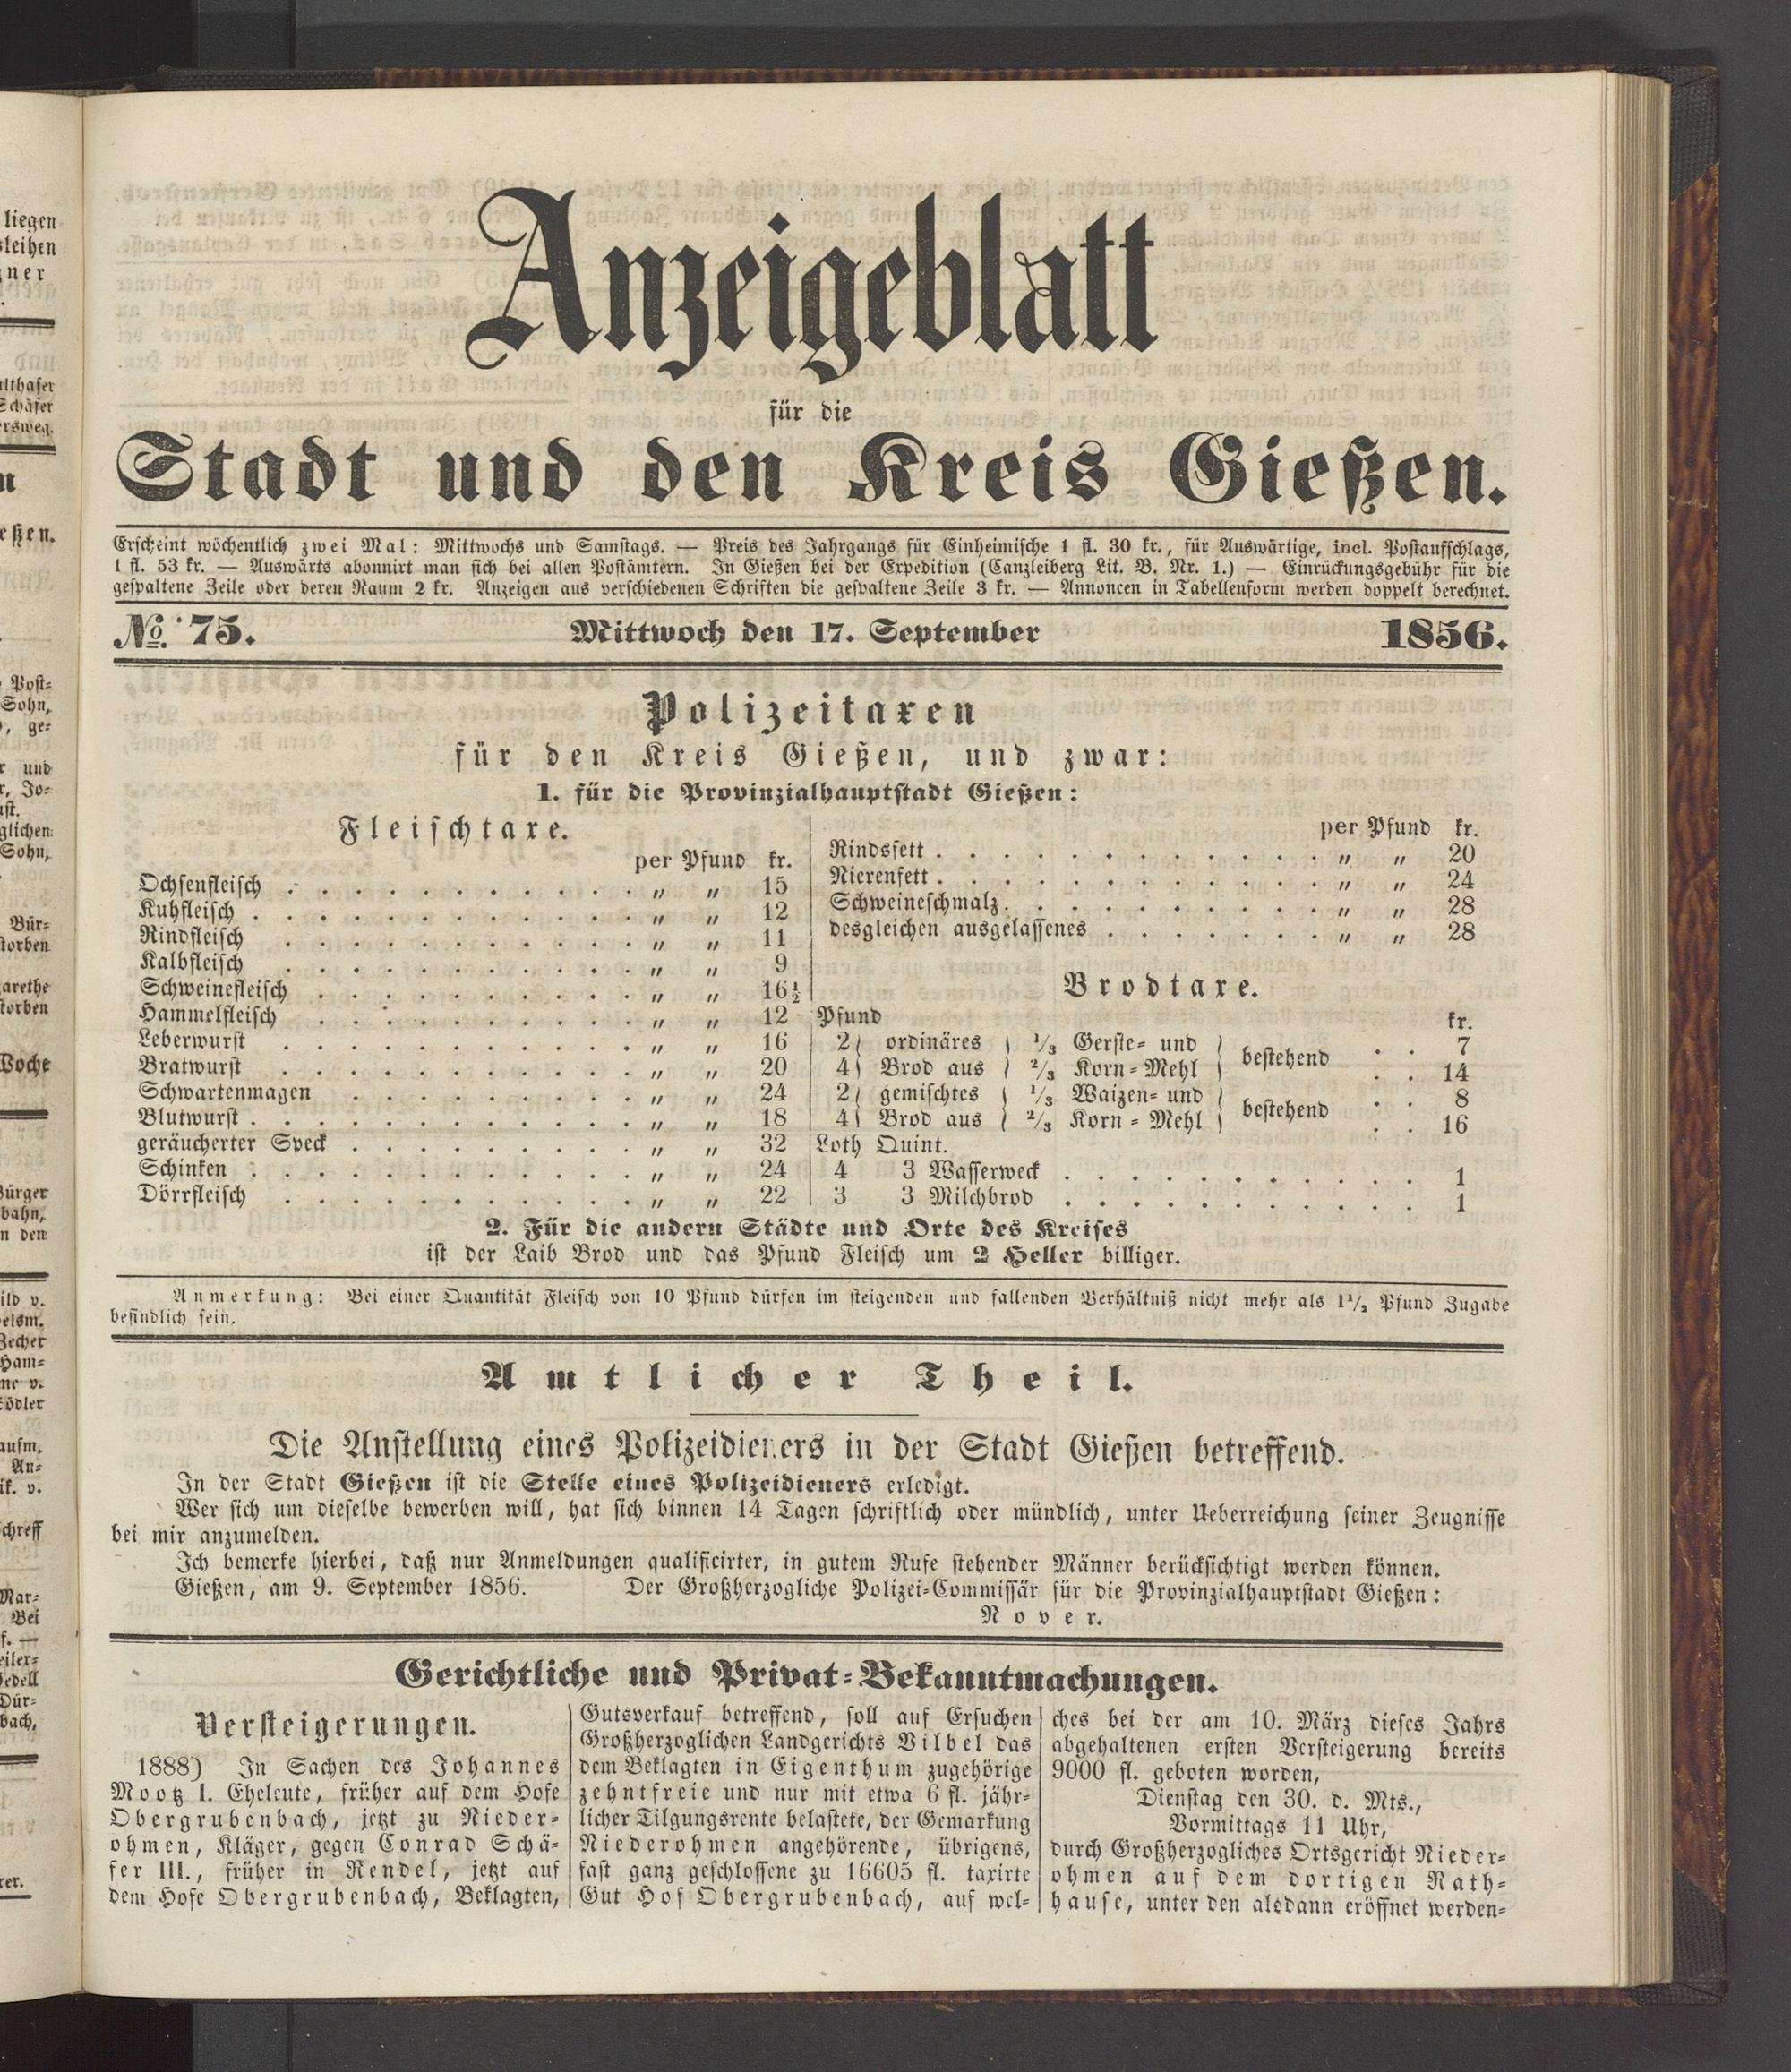 liegen
sleihen
ner
althaser
Schäfer
ersweg.
n
eßen.
Post-
Sohn,
ge-
r und
r, Jo-
ust.
glichen
Sohn,
Bür-
storben
garethe
storben
Woche
Bürger
bahn,
n den
ild v.
elsm.
Zecher
Ham-
me v.
ködler
aufm.
An-
ik. v.
chreff
Mar-
Bei
f. —
eiler-
Pedell
Dür-
bach,
rer.
Anzeigeblatt
für die
Stadt und den Kreis Gießen.
Erscheint wöchentlich zwei Mal: Mittwochs und Samstags. — Preis des Jahrgangs für Einheimische 1 fl. 30 kr., für Auswärtige, incl. Postaufschlags,
1 fl. 53 kr. — Auswärts abonnirt man sich bei allen Postämtern. In Gießen bei der Expedition (Canzleiberg Lit. B. Nr. 1.) — Einrückungsgebühr für die
gespaltene Zeile oder deren Raum 2 kr. Anzeigen aus verschiedenen Schriften die gespaltene Zeile 3 kr. — Annoncen in Tabellenform werden doppelt berechnet.
No. 75. Mittwoch den 17. September 1856.
Polizeitaxen
für den Kreis Gießen, und zwar:
1. für die Provinzialhauptstadt Gießen:
Fleischtaxe.
per Pfund kr.
Ochsenfleisch . . . . . . . . . . . „ „ 15
Kuhfleisch . . . . . . . . . . . . „ „ 12
Rindfleisch . . . . . . . . . . . „ „ 11
Kalbfleisch . . . . . . . . . . . „ „ 9
Schweinefleisch . . . . . . . . . . „ „ 16½
Hammelfleisch . . . . . . . . . . „ „ 12
Leberwurst . . . . . . . . . . . „ „ 16
Bratwurst . . . . . . . . . . . „ „ 20
Schwartenmagen . . . . . . . . . „ „ 24
Blutwurst . . . . . . . . . . . . „ „ 18
geräucherter Speck . . . . . . . . . „ „ 32
Schinken . . . . . . . . . . . . „ „ 24
Dörrfleisch . . . . . . . . . . . „ „ 22
per Pfund kr.
Rindsfett . . . . . . . . . . . . „ „ 20
Nierenfett . . . . . . . . . . . . „ „ 24
Schweineschmalz . . . . . . . . . . „ „ 28
desgleichen ausgelassenes . . . . . . . „ „ 28
Brodtaxe.
Pfund kr.
2 ordinäres ⅓ Gerste- und bestehend . . 7
4 Brod aus ⅔ Korn-Mehl . . 14
2 gemischtes ⅓ Waizen- und bestehend . . 8
4 Brod aus ⅔ Korn-Mehl . . 16
Loth Quint.
4 3 Wasserweck . . . . . . . . . . . 1
3 3 Milchbrod . . . . . . . . . . . 1
2. Für die andern Städte und Orte des Kreises
ist der Laib Brod und das Pfund Fleisch um 2 Heller billiger.
Anmerkung: Bei einer Quantität Fleisch von 10 Pfund dürfen im steigenden und fallenden Verhältniß nicht mehr als 1½ Pfund Zugabe
befindlich sein.
Amtlicher Theil.
Die Anstellung eines Polizeidieners in der Stadt Gießen betreffend.
In der Stadt Gießen ist die Stelle eines Polizeidieners erledigt.
Wer sich um dieselbe bewerben will, hat sich binnen 14 Tagen schriftlich oder mündlich, unter Ueberreichung seiner Zeugnisse
bei mir anzumelden.
Ich bemerke hierbei, daß nur Anmeldungen qualificirter, in gutem Rufe stehender Männer berücksichtigt werden können.
Gießen, am 9. September 1856. Der Großherzogliche Polizei-Commissär für die Provinzialhauptstadt Gießen:
Nover.
Gerichtliche und Privat-Bekanntmachungen.
Versteigerungen.
1888) In Sachen des Johannes
Mootz I. Eheleute, früher auf dem Hofe
Obergrubenbach, jetzt zu Nieder-
ohmen, Kläger, gegen Conrad Schä-
fer III., früher in Rendel, jetzt auf
dem Hofe Obergrubenbach, Beklagten,
Gutsverkauf betreffend, soll auf Ersuchen
Großherzoglichen Landgerichts Vilbel das
dem Beklagten in Eigenthum zugehörige
zehntfreie und nur mit etwa 6 fl. jähr-
licher Tilgungsrente belastete, der Gemarkung
Niederohmen angehörende, übrigens,
fast ganz geschlossene zu 16605 fl. taxirte
Gut Hof Obergrubenbach, auf wel-
ches bei der am 10. März dieses Jahrs
abgehaltenen ersten Versteigerung bereits
9000 fl. geboten worden,
Dienstag den 30. d. Mts.,
Vormittags 11 Uhr,
durch Großherzogliches Ortsgericht Nieder-
ohmen auf dem dortigen Rath-
hause, unter den alsdann eröffnet werden-